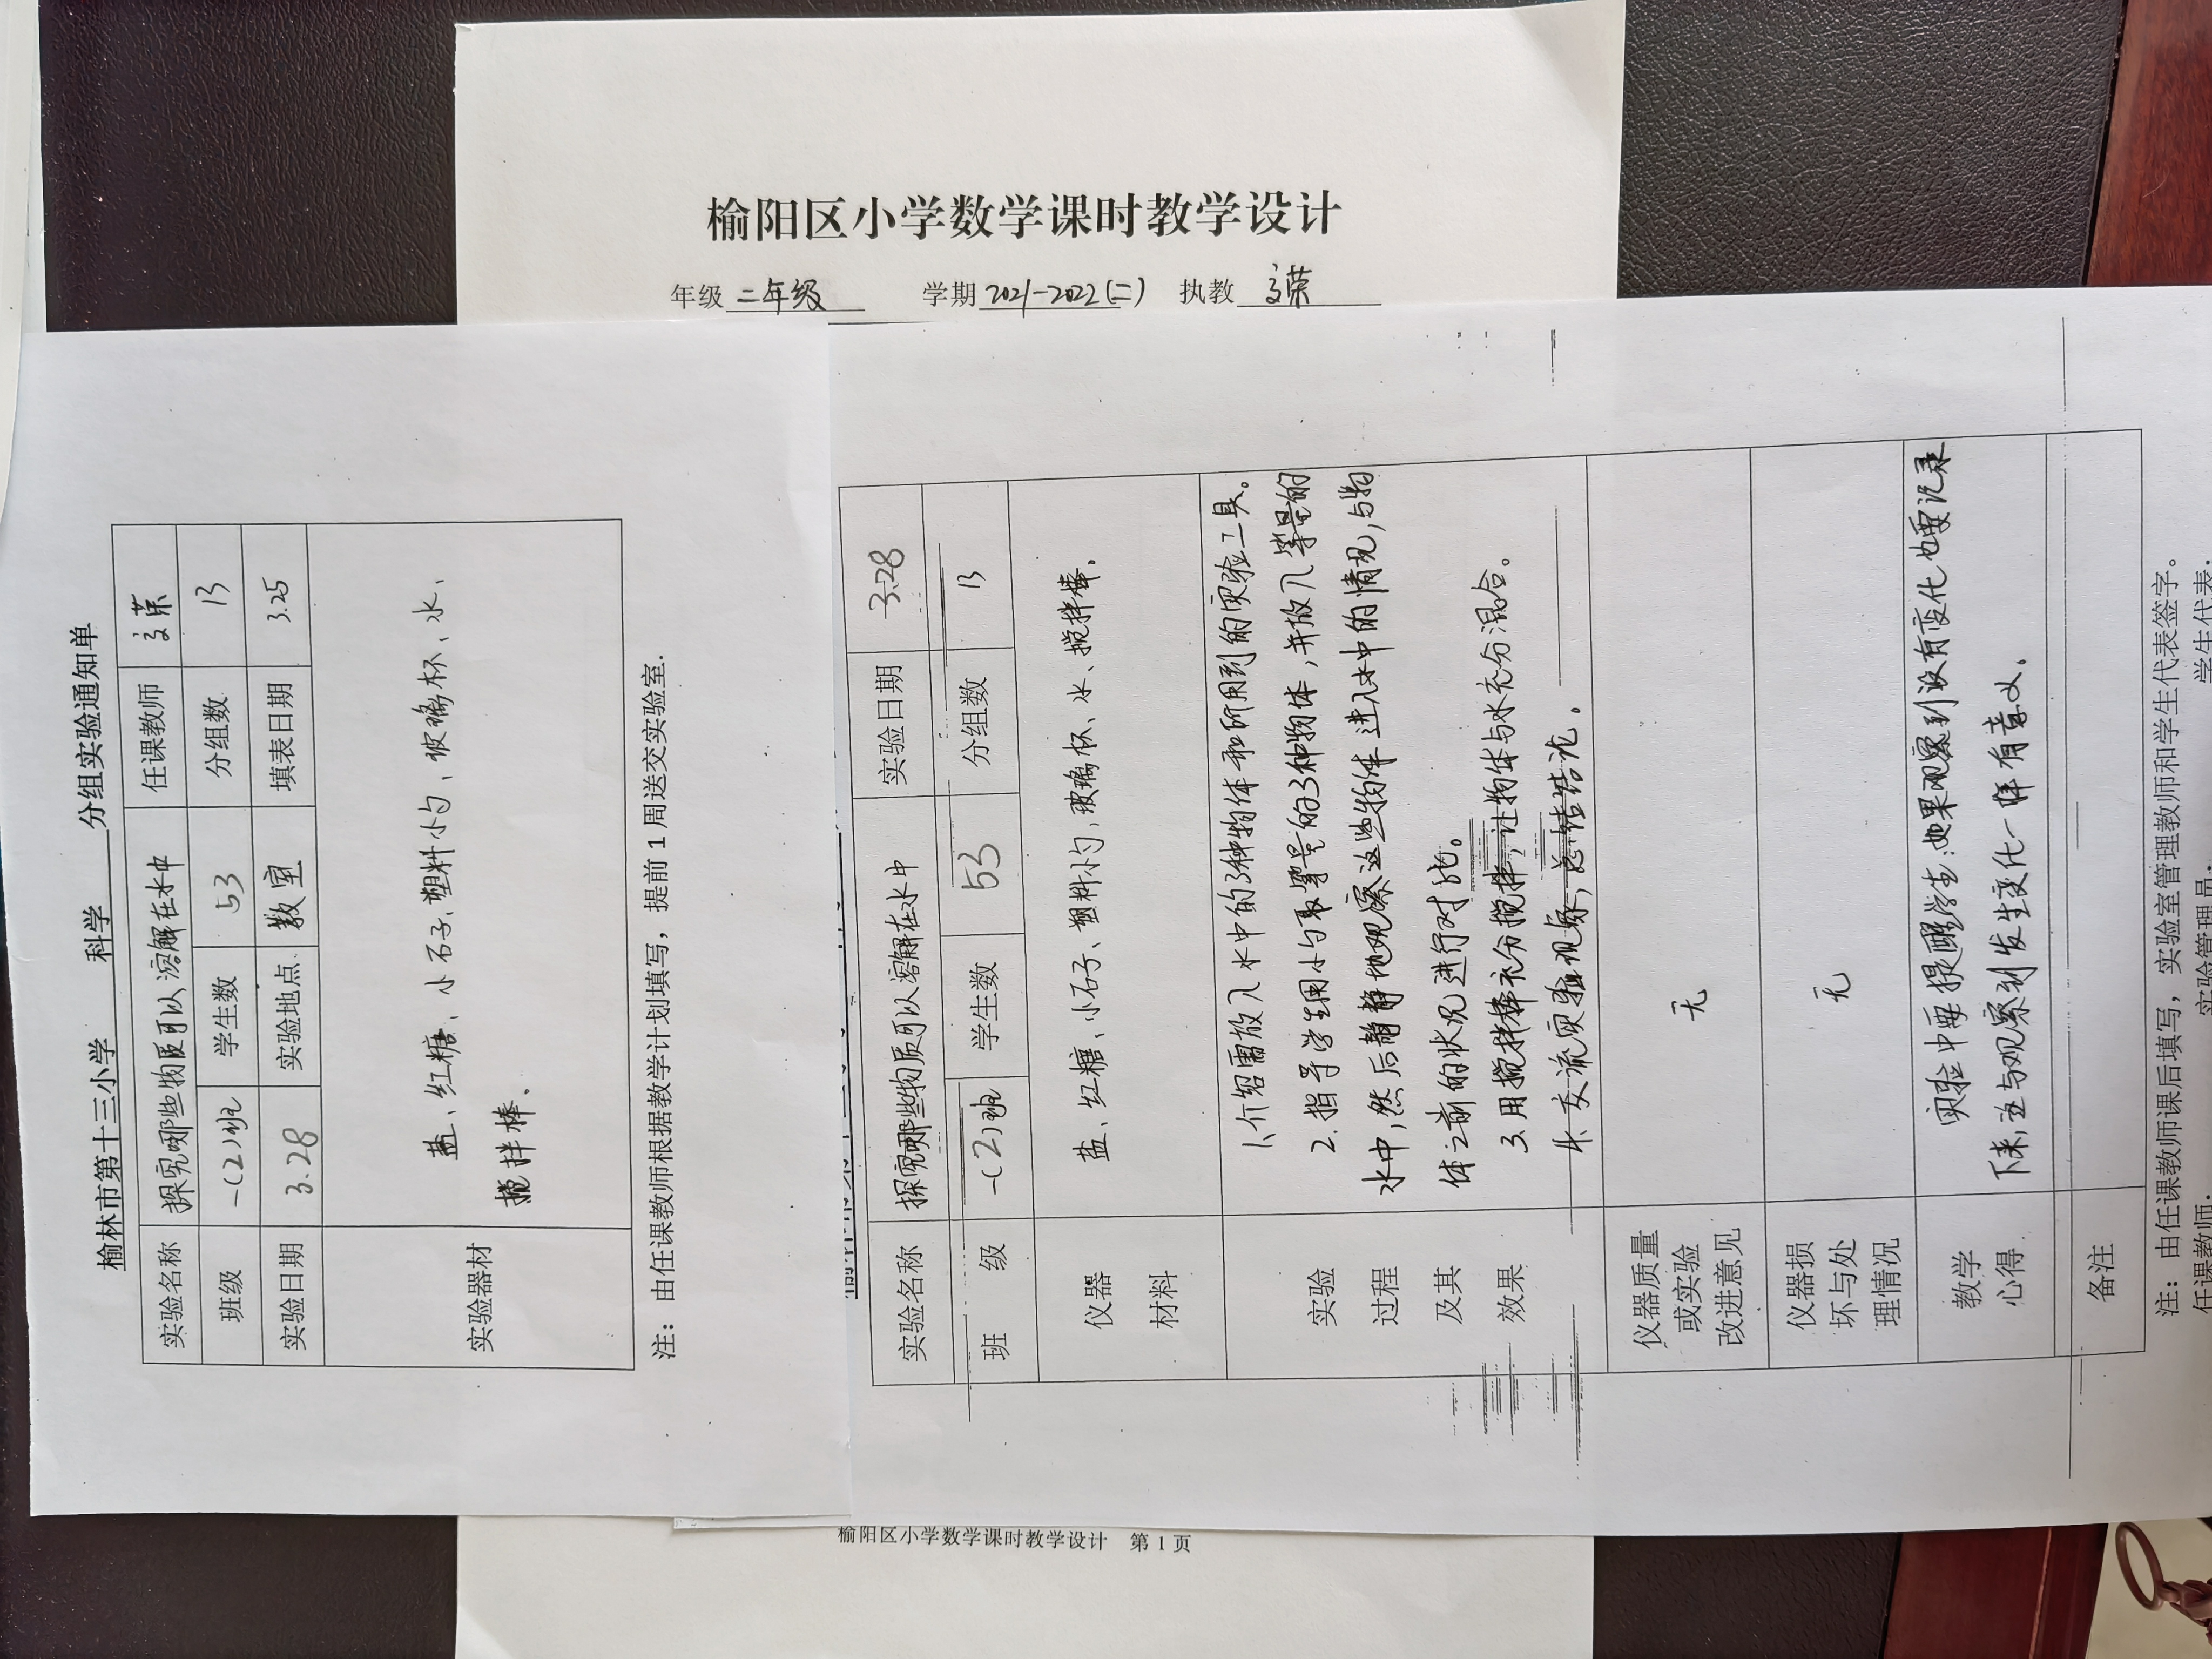 榆阳区小学数学课时教学设计
年级 二年级 学期 2021-2022(二) 执教 文荣
榆林市第十三小学 科学 分组实验通知单
实验名称 探究哪些物质可以溶解在水中 任课教师 文荣
班级 一(2)班 学生数 53 分组数 13
实验日期 3.28 实验地点 教室 填表日期 3.25
实验器材 盐、红糖、小石子、塑料小勺、玻璃杯、水、
搅拌棒、
注：由任课教师根据教学计划填写，提前1周送交实验室.
实验名称 探究哪些物质可以溶解在水中 实验日期 3.28
班 级 一(2)班 学生数 53 分组数 13
仪器
材料
盐、红糖、小石子、塑料小勺、玻璃杯、水、搅拌棒。
实验
过程
及其
效果
1、介绍需放入水中的3种物体和所用到的实验工具。
2.指导学生用小勺取等量的3种物体，并放入等量的
水中，然后静静地观察这些物体进入水中的情况，与物
体之前的状况进行对比。
3.用搅拌棒充分搅拌，让物体与水充分混合。
4.交流实验现象，总结结论。
仪器质量
或实验
改进意见
无
仪器损
坏与处
理情况
无
教学
心得
实验中要提醒学生：如果观察到没有变化也要记录
下来，这与观察到发生变化一样有意义。
备注
注：由任课教师课后填写，实验室管理教师和学生代表签字。
任课教师： 实验管理员： 学生代表：
榆阳区小学数学课时教学设计 第1页